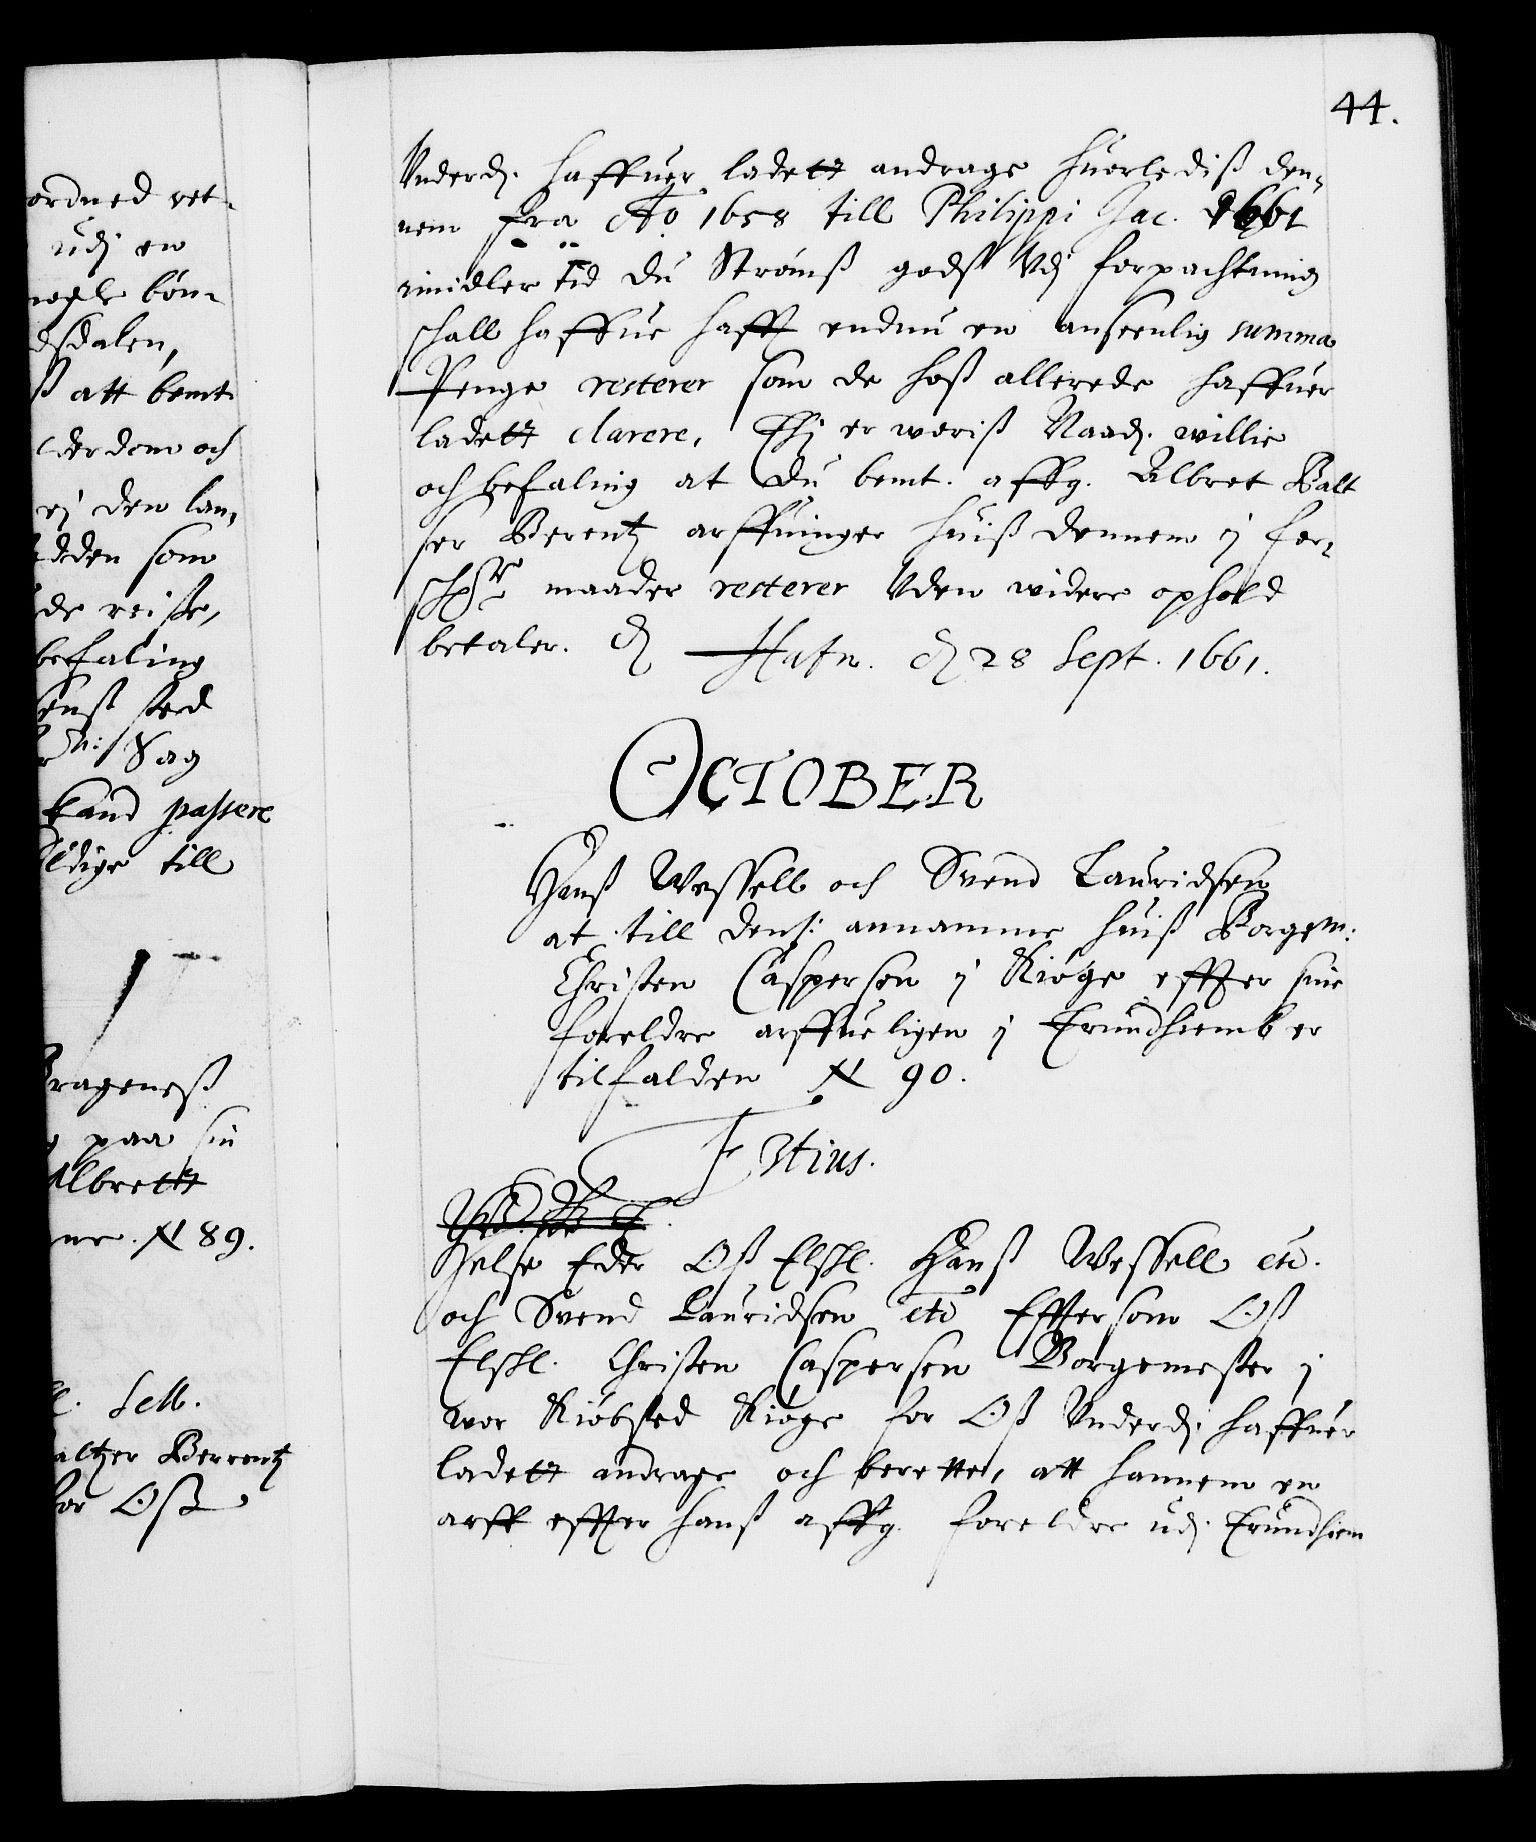 44.
Underd. haffuer ladett andrage huorlediß den-
nem fra Ao 1658 till Philippi Jac. 1661
imidler tid du Strømß gods Udj forpachtning
schall haffue hafft endnu en anseenlig summa
Penge resterer som de hoß allerede haffuer
ladett clarere, Thj er woriß Naad. willie
och befaling at du bemt. affg. Albret Balt
ser Berentz arffuinger huiß dennem j for-
schr maader resterer Uden widere ophold
betaler. Hafn. d 28 Sept. 1661.
OCTOBER
Hanß Wessell och Svend Lauridsen
at till dens: annamme huiß Borgem:
Christen Caspersen j Kiøge effter sine
foreldre arffueligen j Trundhiemb er
tilfalden N 90.
F 3tius.
Helse Eder Oß Elskl. Hanß Wessell etc.
och Svend Lauridsen etc Effttersom Oß
Elskl. Christen Caspersen Borgemester j
wor Kiøbsted Kiøge for Oß Underd. haffuer
ladett andrage och berette, att hannem en
arff effter hanß affg. foreldre udj Trundhiem
ordned ret-
udj en
nogle bøn-
dsdalen,
ß att bemt
derdom och
ej den lan-
dden som
de reiße,
befaling
enß sted
Sag
kand passere
ldige till
Brageneß
paa sin
Albrett
ne. N 89.
l. Sell.
altzer Berrentz
for Oß